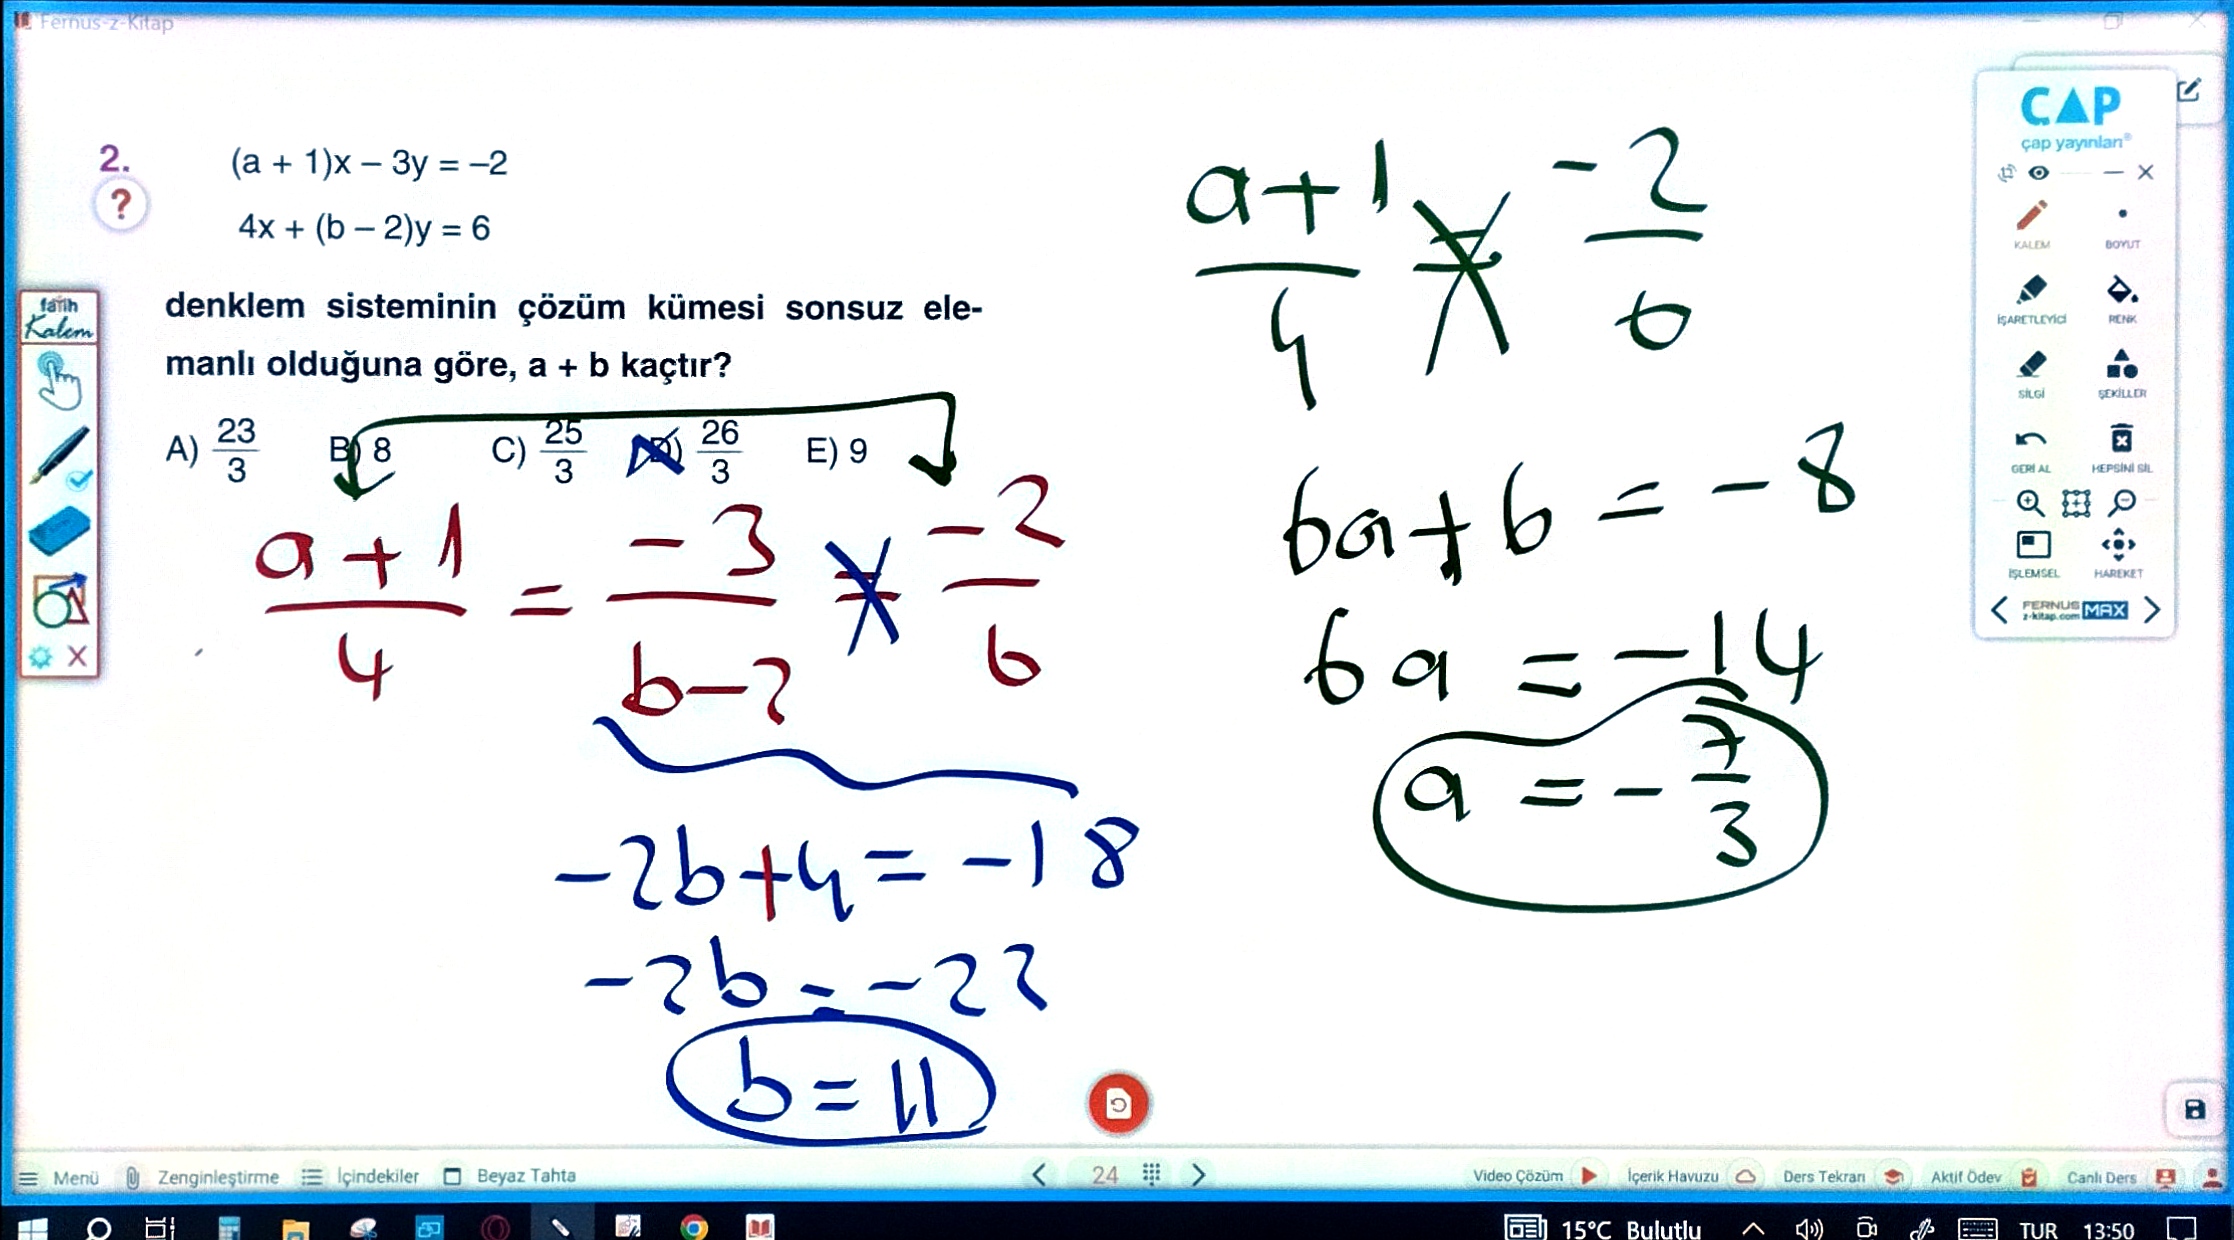 Fernus-z-Kitap
2.
?
(a + 1)x – 3y = –2
4x + (b – 2)y = 6
denklem sisteminin çözüm kümesi sonsuz ele-
manlı olduğuna göre, a + b kaçtır?
A) 23/3 B) 8 C) 25/3 D) 26/3 E) 9
a+1/4 = -3/b-2 = -2/6
-2b+4 = -18
-2b = -22
b = 11
a+1/4 = -2/6
6a+6 = -8
6a = -14
a = -7/3
fatih
Kalem
ÇAP
çap yayınları®
KALEM BOYUT
İŞARETLEYİCİ RENK
SİLGİ ŞEKİLLER
GERİ AL HEPSİNİ SİL
İŞLEMSEL HAREKET
FERNUS MAX
z-kitap.com
Menü Zenginleştirme İçindekiler Beyaz Tahta 24 Video Çözüm İçerik Havuzu Ders Tekrarı Aktif Ödev Canlı Ders
15°C Bulutlu TUR 13:50